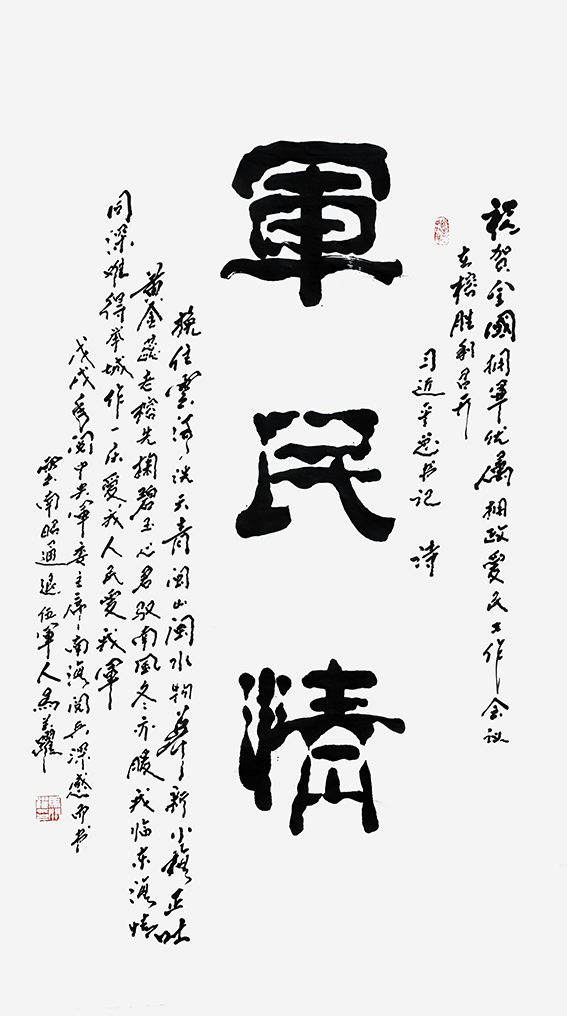 祝贺全國拥軍优属拥政爱民工作会议
在榕胜利召开
习近平总书记 诗
軍民情
挽住雲河洗天青闽山闽水物華新小梅正吐
黄金蕊老榕先掬碧玉心君驭南风冬亦暖我临东海情
同深难得举城作一庆爱我人民爱我軍
戊戌春阅中央軍委主席南海阅兵深感而书
雲南昭通退伍軍人